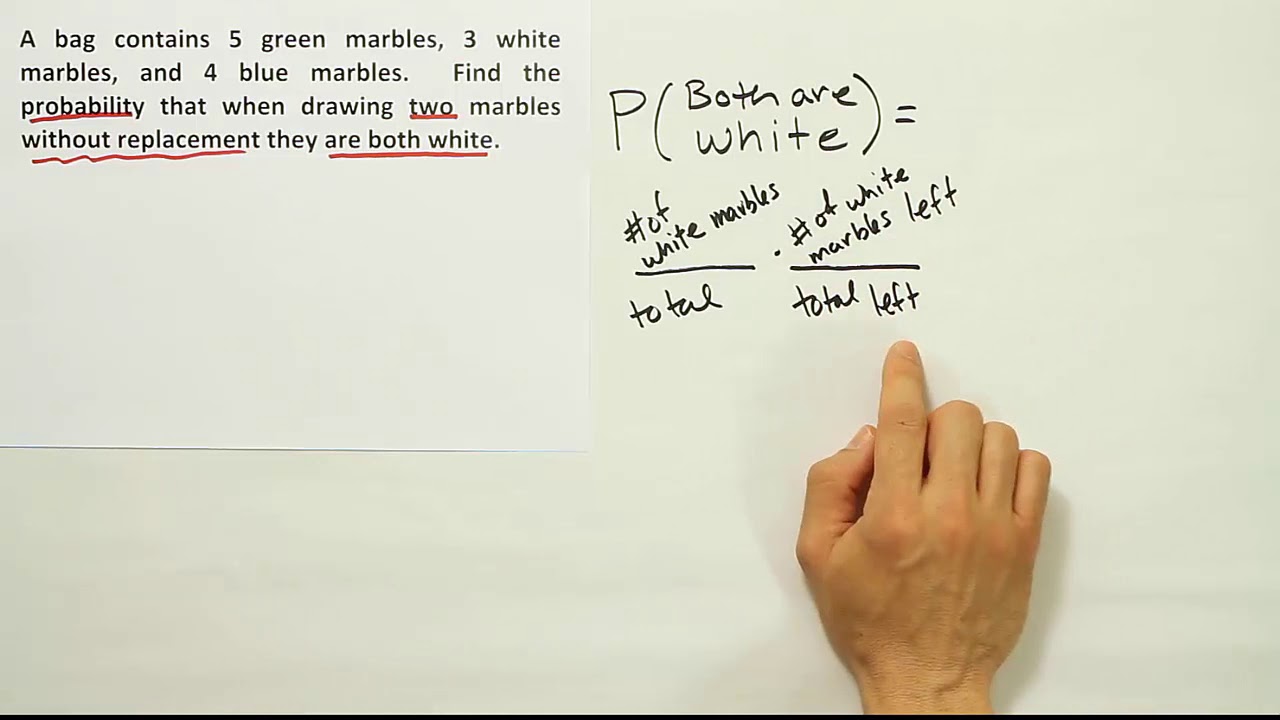 A bag contains 5 green marbles, 3 white
marbles, and 4 blue marbles. Find the
probability that when drawing two marbles
without replacement they are both white.
P(Both are
white) =
# of
white marbles
total
· # of white
marbles left
total left